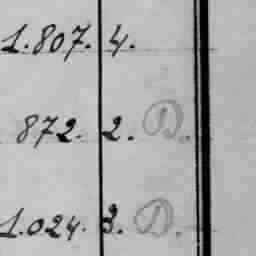 1.807. 4.
872. 2. D.
1.024. 3. D.